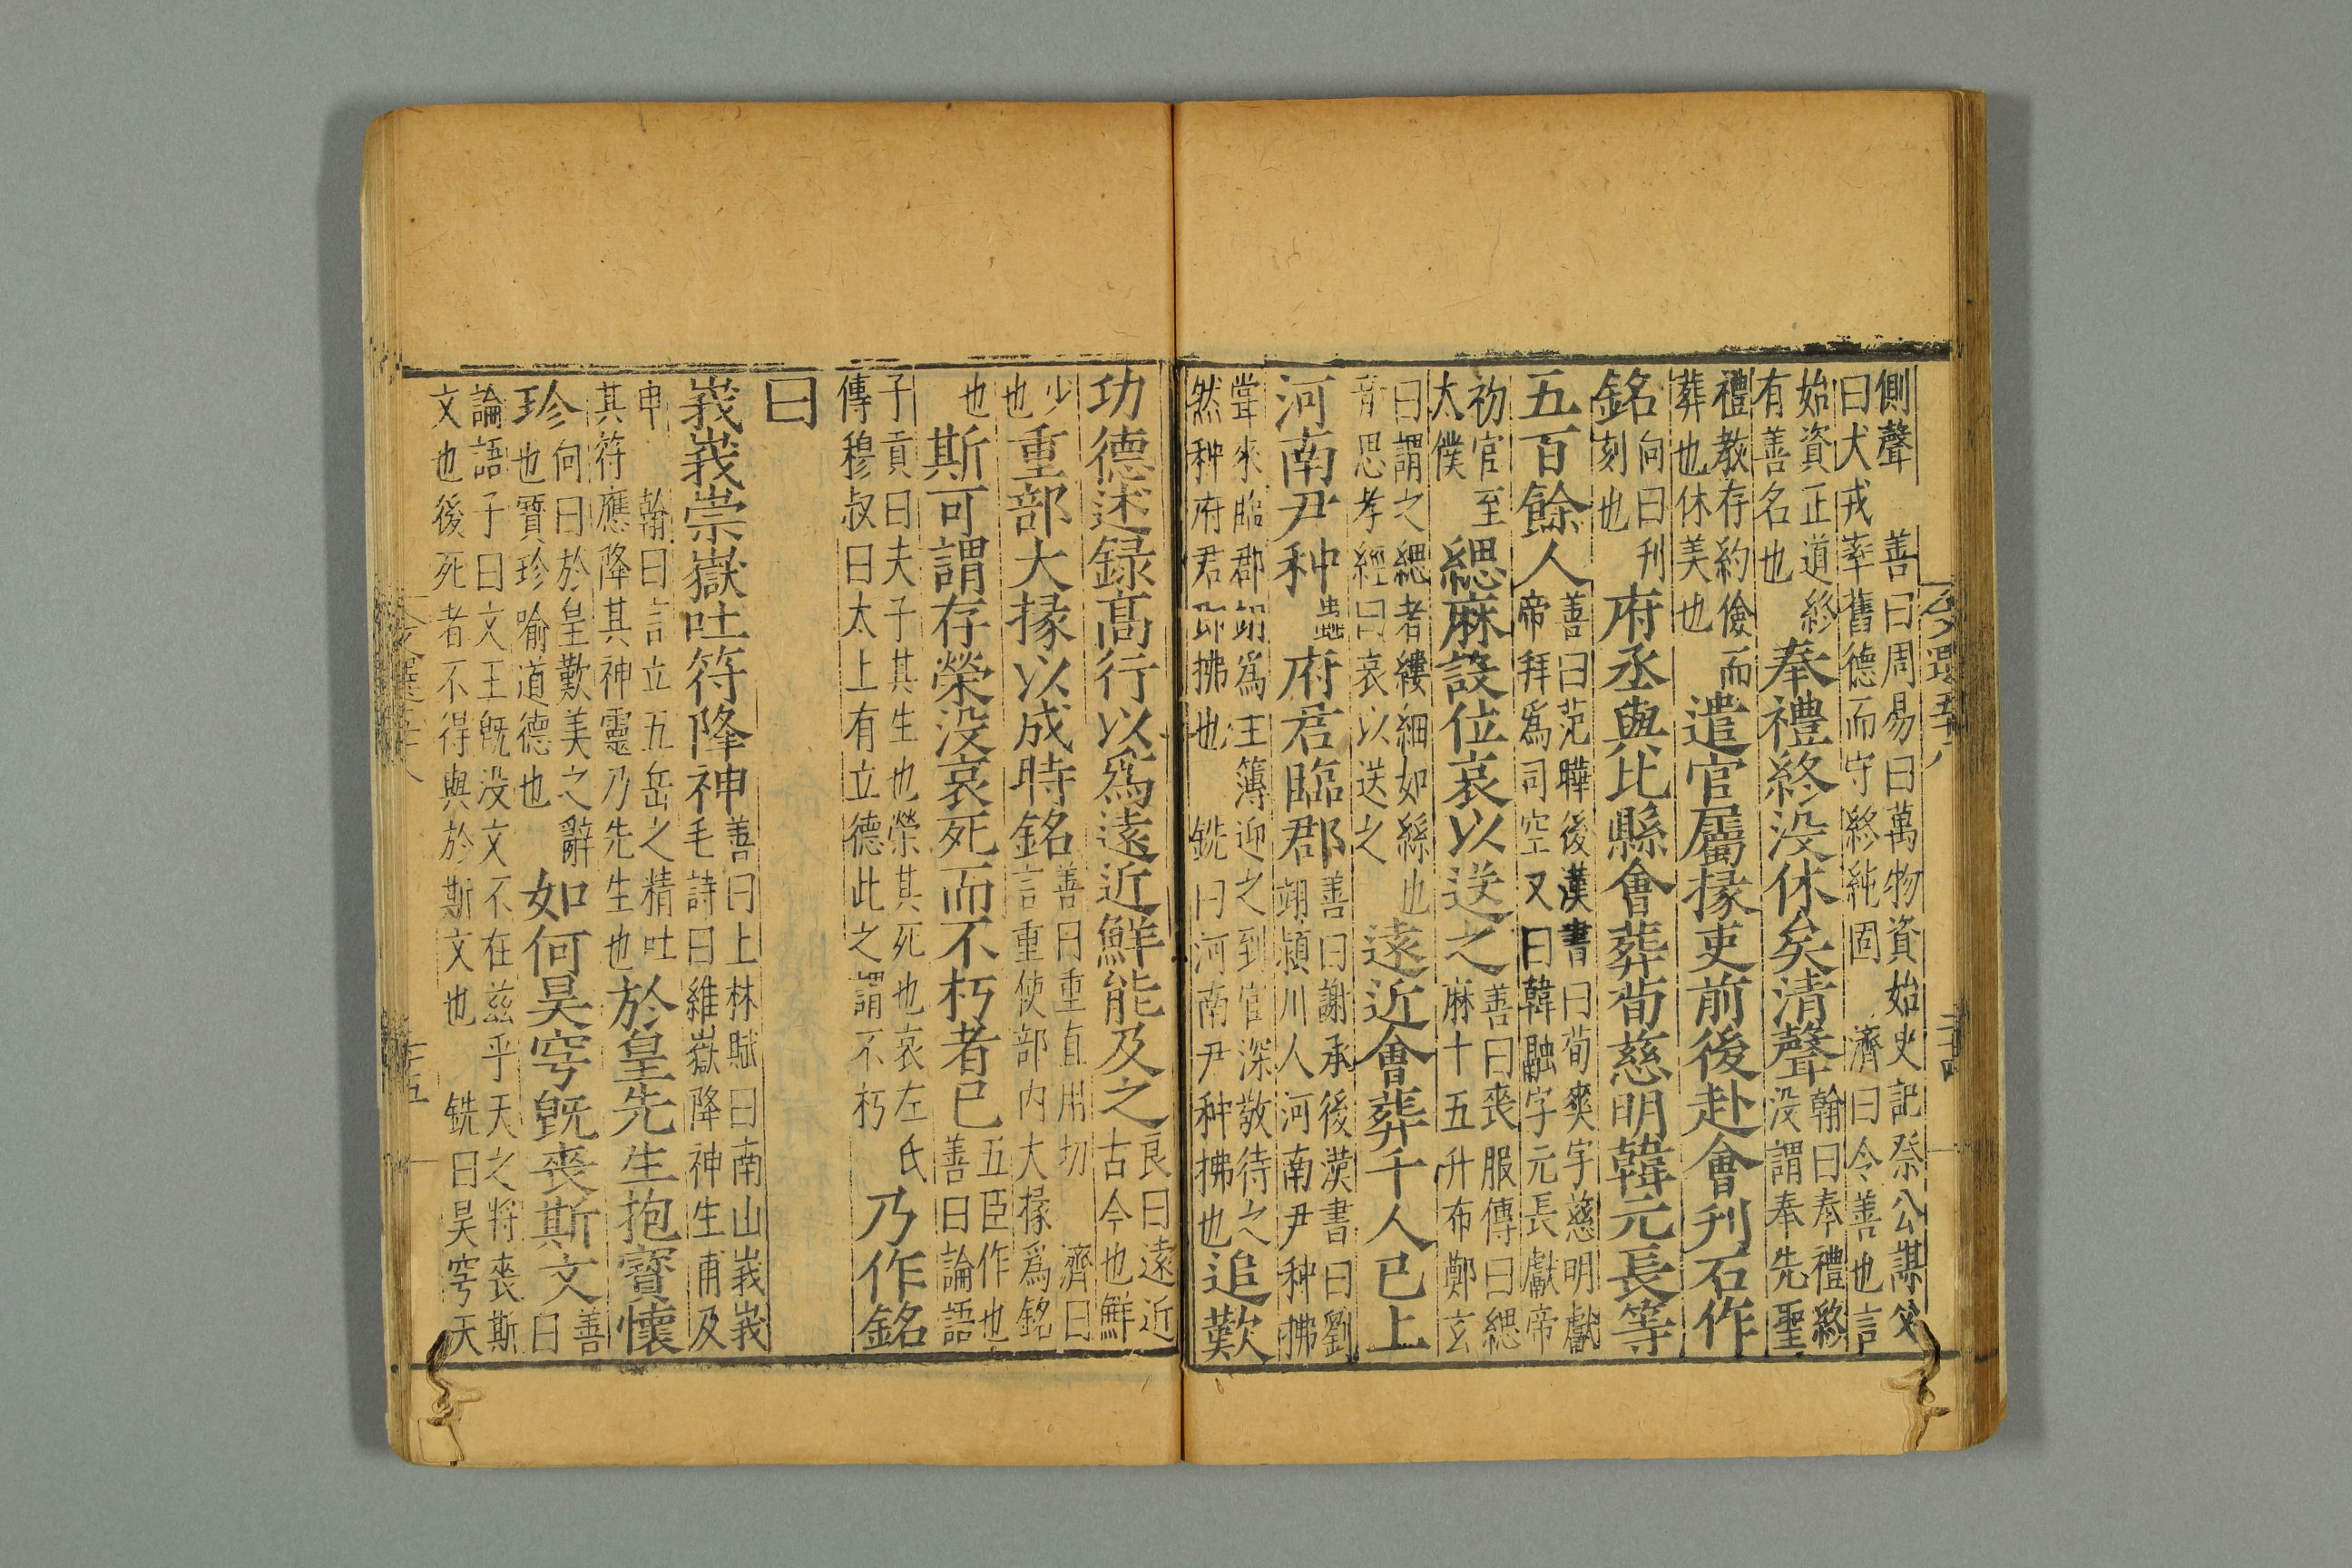 側聲 善曰周易曰萬物資始史記祭公謀父
曰犬戎率舊德而守終純固 濟曰令善也言
始資正道終
有善名也
奉禮終没休矣清聲
翰曰奉禮終
没謂奉先聖
禮教存約儉而
葬也休美也
遣官屬掾吏前後赴會刋石作
銘
向曰刋
刻也
府丞與比縣會葬荀慈明韓元長等
五百餘人
善曰范曄後漢書曰荀爽字慈明獻
帝拜爲司空又曰韓融字元長獻帝
初官至
太僕
緦麻設位哀以送之
善曰喪服傳曰緦
麻十五升布鄭玄
曰謂之緦者縷細如絲也
音思孝經曰哀以送之
遠近會葬千人已上
河南尹种
蟲
府君臨郡
善曰謝承後漢書曰劉
翊潁川人河南尹种拂
嘗來臨郡翊爲主簿迎之到官深敬待之
然种府君即拂也 銑曰河南尹种拂也
追歎
功德述録高行以爲遠近鮮能及之
良曰遠近
古今也鮮
少
也
重部大掾以成時銘
善曰重直用切 濟曰
言重使部内大掾爲銘
也
斯可謂存榮没哀死而不朽者已
五臣作也
善曰論語
子貢曰夫子其生也榮其死也哀左氏
傳穆叔曰太上有立德此之謂不朽
乃作銘
曰
峩峩崇嶽吐符降神
善曰上林賦曰南山峩峩
毛詩曰維嶽降神生甫及
申 翰曰言立五岳之精吐
其符應降其神靈乃先生也
於皇先生抱寳懷
珍
向曰於皇歎美之辭
也寳珍喻道德也
如何昊穹旣喪斯文
善
曰
論語子曰文王旣没文不在兹乎天之將喪斯
文也後死者不得與於斯文也 銑曰昊穹天